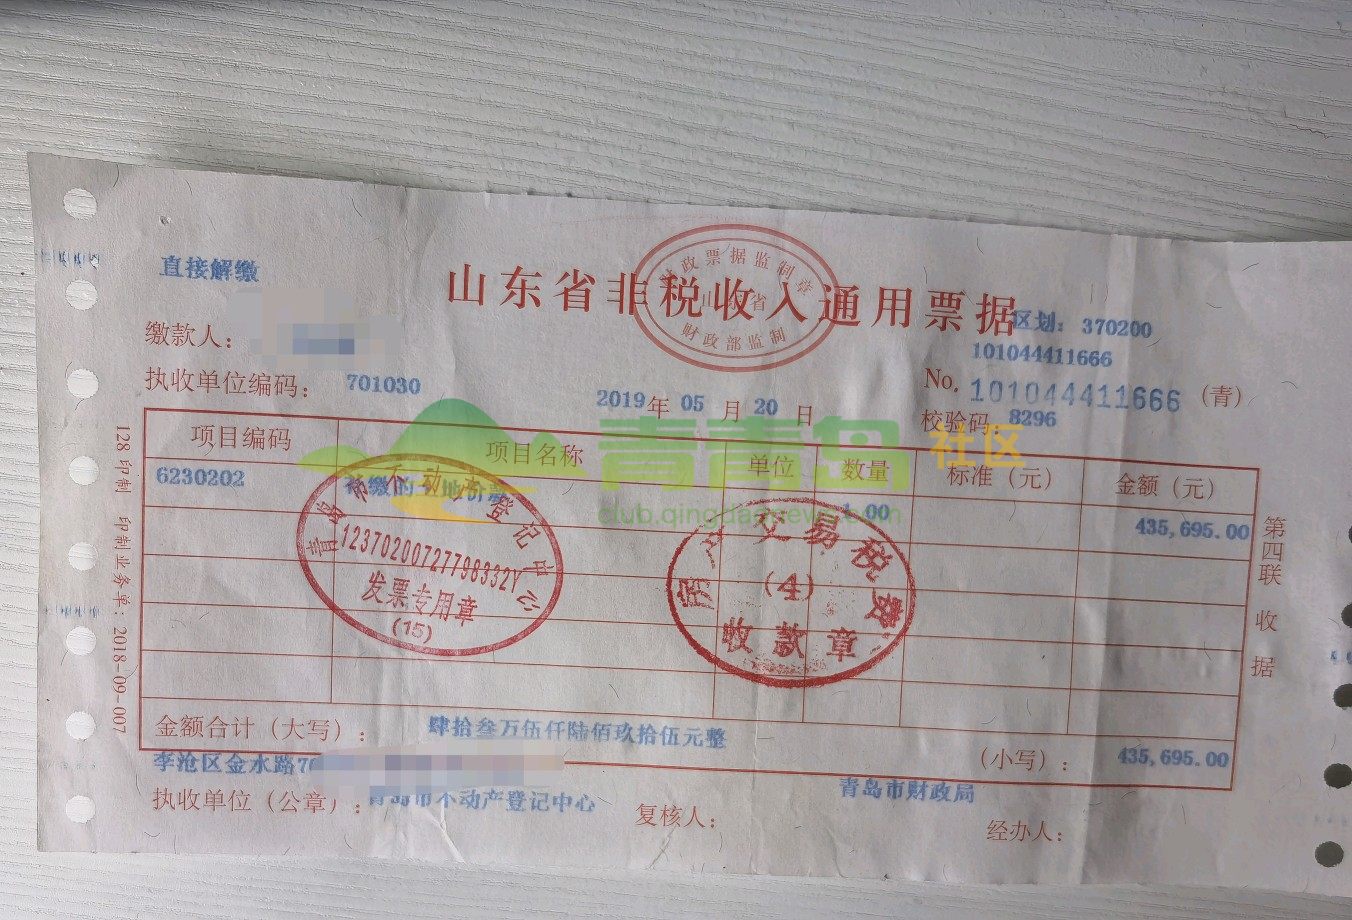 直接解缴
山东省非税收入通用票据
财政票据监制章
山东省
财政部监制
区划：370200
101044411666
缴款人：
No. 101044411666 （青）
执收单位编码：701030
2019年 05 月 20 日
校验码：8296
项目编码 项目名称 单位 数量 标准（元） 金额（元）
6230202 补缴的土地价款 1.00 435,695.00
青岛市不动产登记中心
12370200727798332Y
发票专用章
(15)
交易税费
(4)
收款章
青青岛 社区
club.qingdaonews.com
第四联 收据
128 印制 印制业务单：2018-09-007
金额合计（大写）：肆拾叁万伍仟陆佰玖拾伍元整 （小写）：435,695.00
李沧区金水路
青岛市财政局
执收单位（公章）：青岛市不动产登记中心 复核人： 经办人：